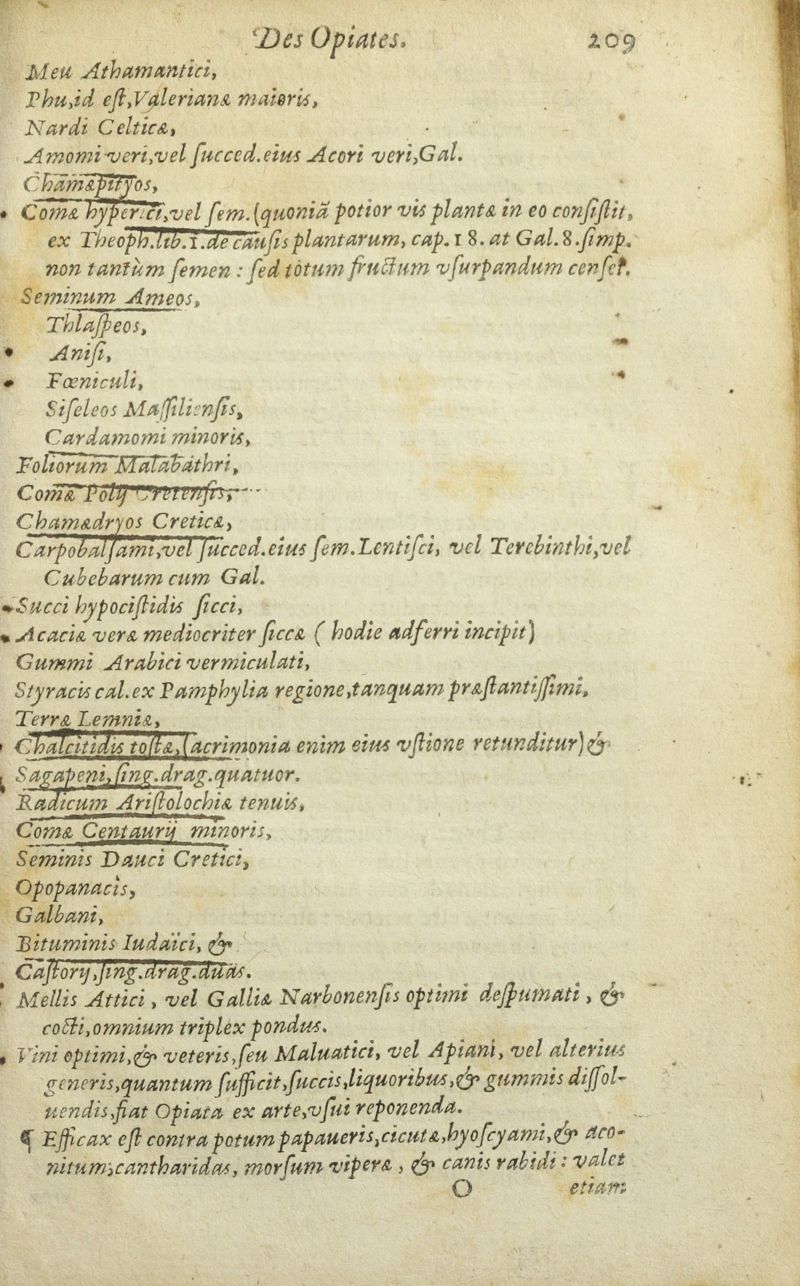 Des Opiates. 209
Meu Athamantici,
Phu,id eſt,Valerianæ maioris,
Nardi Celticæ,
Amomi veri,vel ſucced.eius Acori veri,Gal.
Chamæpityos,
Comæ hyperici,vel ſem.(quoniã potior vis plantæ in eo conſiſtit,
ex Theoph.lib.1.de cauſis plantarum, cap.18. at Gal.8.ſimp.
non tantùm ſemen : ſed totum fructum vſurpandum cenſet.
Seminum Ameos,
Thlaſpeos,
Aniſi,
Fœniculi,
Siſeleos Maſſilienſis,
Cardamomi minoris,
Foliorum Malabathri,
Comæ Polij Cretenſis,
Chamædryos Creticæ,
Carpobalſami,vel ſucced.eius ſem.Lentiſci, vel Terebinthi,vel
Cubebarum cum Gal.
Succi hypociſtidis ſicci,
Acaciæ veræ mediocriter ſiccæ ( hodie adferri incipit)
Gummi Arabici vermiculati,
Styracis cal.ex Pamphylia regione,tanquam præſtantiſſimi,
Terræ Lemniæ,
Chalcitidis toſtæ,(acrimonia enim eius vſtione retunditur) &
Sagapeni,ſing.drag.quatuor.
Radicum Ariſtolochiæ tenuis,
Comæ Centaurij minoris,
Seminis Dauci Cretici,
Opopanacis,
Galbani,
Bituminis Iudaïci, &
Caſtorij,ſing.drag.duas.
Mellis Attici , vel Galliæ Narbonenſis optimi deſpumati , &
cocti,omnium triplex pondus.
Vini optimi,& veteris,ſeu Maluatici, vel Apiani, vel alterius
generis,quantum ſufficit,ſuccis,liquoribus,& gummis diſſol-
uendis,fiat Opiata ex arte,vſui reponenda.
¶ Efficax eſt contra potum papaueris,cicutæ,hyoſcyami,& aco-
nitum,cantharidas, morſum viperæ , & canis rabidi : valet
O etiam